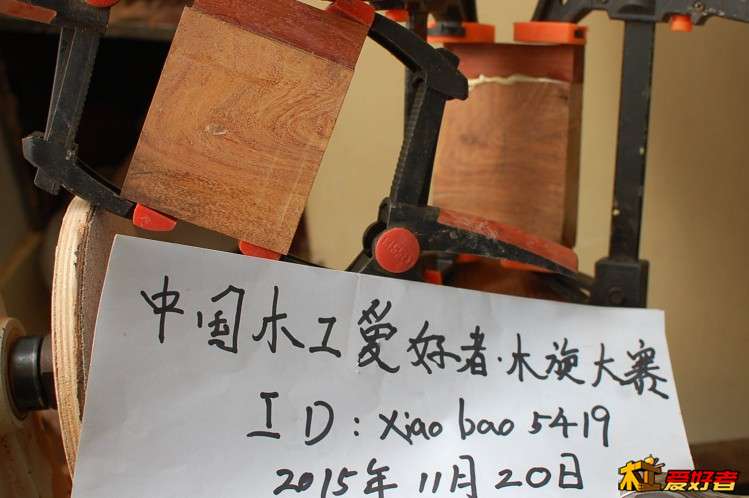 中国木工爱好者·木旋大赛
ID:xiaobao5419
2015年11月20日
木工爱好者